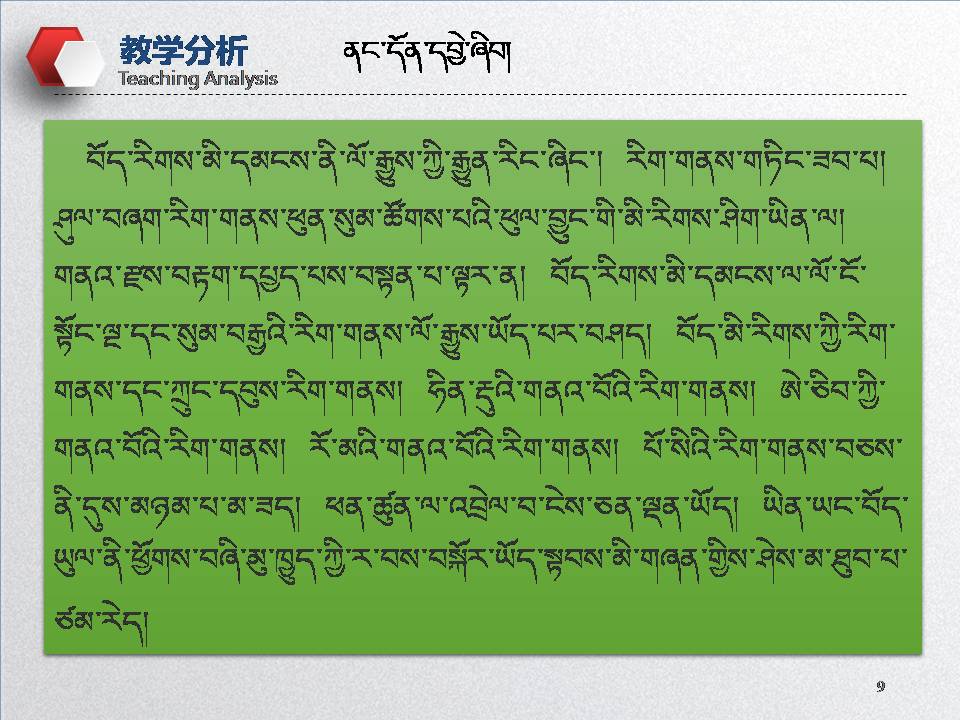 教学分析
Teaching Analysis
ནང་དོན་དབྱེ་ཞིབ།
བོད་རིགས་མི་དམངས་ནི་ལོ་རྒྱུས་ཀྱི་རྒྱུན་རིང་ཞིང་། རིག་གནས་གཏིང་ཟབ་པ།
ཤུལ་བཞག་རིག་གནས་ཕུན་སུམ་ཚོགས་པའི་ཕུལ་བྱུང་གི་མི་རིགས་ཤིག་ཡིན་ལ།
གནའ་རྫས་བརྟག་དཔྱད་པས་བསྟན་པ་ལྟར་ན། བོད་རིགས་མི་དམངས་ལ་ལོ་ངོ་
སྟོང་ལྔ་དང་སུམ་བརྒྱའི་རིག་གནས་ལོ་རྒྱུས་ཡོད་པར་བཤད། བོད་མི་རིགས་ཀྱི་རིག་
གནས་དང་ཀྲུང་དབུས་རིག་གནས། ཧིན་རྡུའི་གནའ་བོའི་རིག་གནས། ཨེ་ཅིབ་ཀྱི་
གནའ་བོའི་རིག་གནས། རོ་མའི་གནའ་བོའི་རིག་གནས། པོ་སིའི་རིག་གནས་བཅས་
ནི་དུས་མཉམ་པ་མ་ཟད། ཕན་ཚུན་ལ་འབྲེལ་བ་ངེས་ཅན་ལྡན་ཡོད། ཡིན་ཡང་བོད་
ཡུལ་ནི་ཕྱོགས་བཞི་མུ་ཁྱུད་ཀྱི་ར་བས་བསྐོར་ཡོད་སྟབས་མི་གཞན་གྱིས་ཤེས་མ་ཐུབ་པ་
ཙམ་རེད།
9